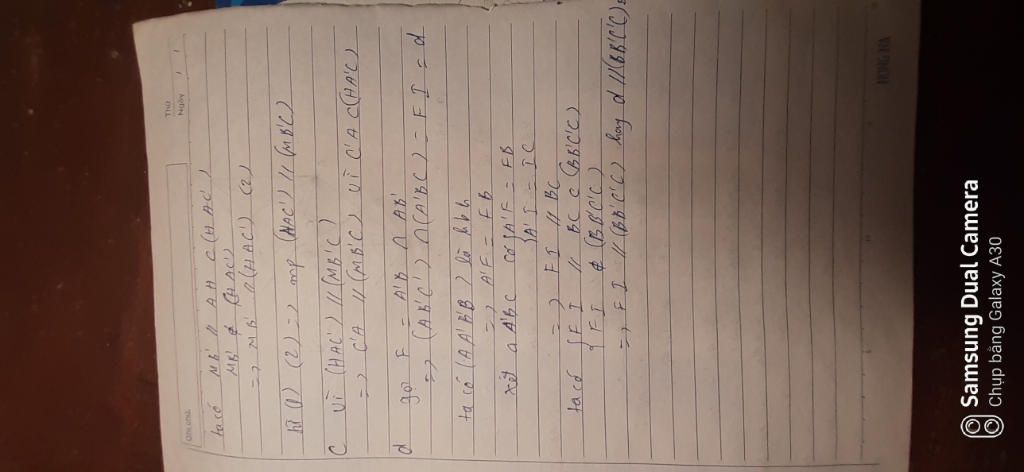 Thứ
Ngày / /
ta có MB' // AH ⊂ (HAC')
MB' ⊄ (HAC')
=> MB' // (HAC') (2)
từ (1) (2) => mp (HAC') // (MB'C)
c vì (HAC') // (MB'C)
=> C'A // (MB'C) vì C'A ⊂ (HAC')
d gọi F = A'B ∩ AB'
=> (AB'C') ∩ (A'BC) = FI = d
ta có (AA'B'B) là hbh
=> A'F = FB
xét Δ A'BC có { A'F = FB
{ A'I = IC
=> FI // BC
ta có { FI // BC ⊂ (BB'C'C)
{ FI ⊄ (BB'C'C)
=> FI // (BB'C'C) hay d // (BB'C'C)
HONG HA
Samsung Dual Camera
Chụp bằng Galaxy A30